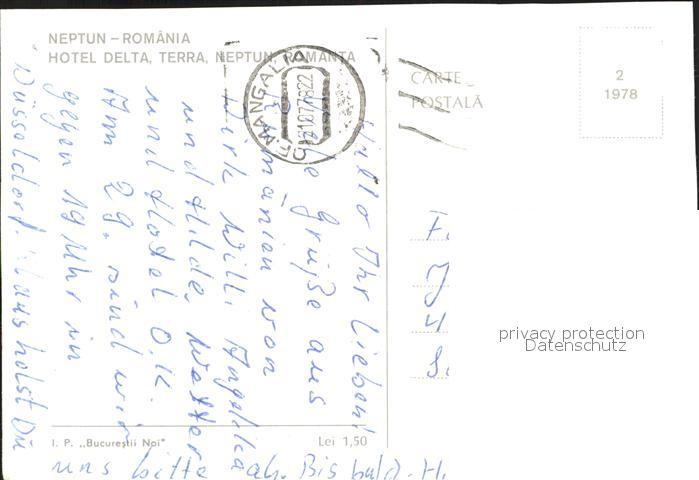 NEPTUN – ROMÂNIA
HOTEL DELTA, TERRA, NEPTUN, ROMANȚA
MANGALIA
CARTE
POSTALĂ
2
1978
Hallo Ihr Lieben!
Grüße aus
von
Dirk Willi Angelika
und Hilde. Wetter
und Hotel O.K.
Am 29. sind wir
gegen 19 Uhr in
Düsseldorf. Klaus holst Du
uns bitte ab. Bis bald. H.
F.
J
4
S.
privacy protection
Datenschutz
I. P. „Bucureștii Noi"
Lei 1,50